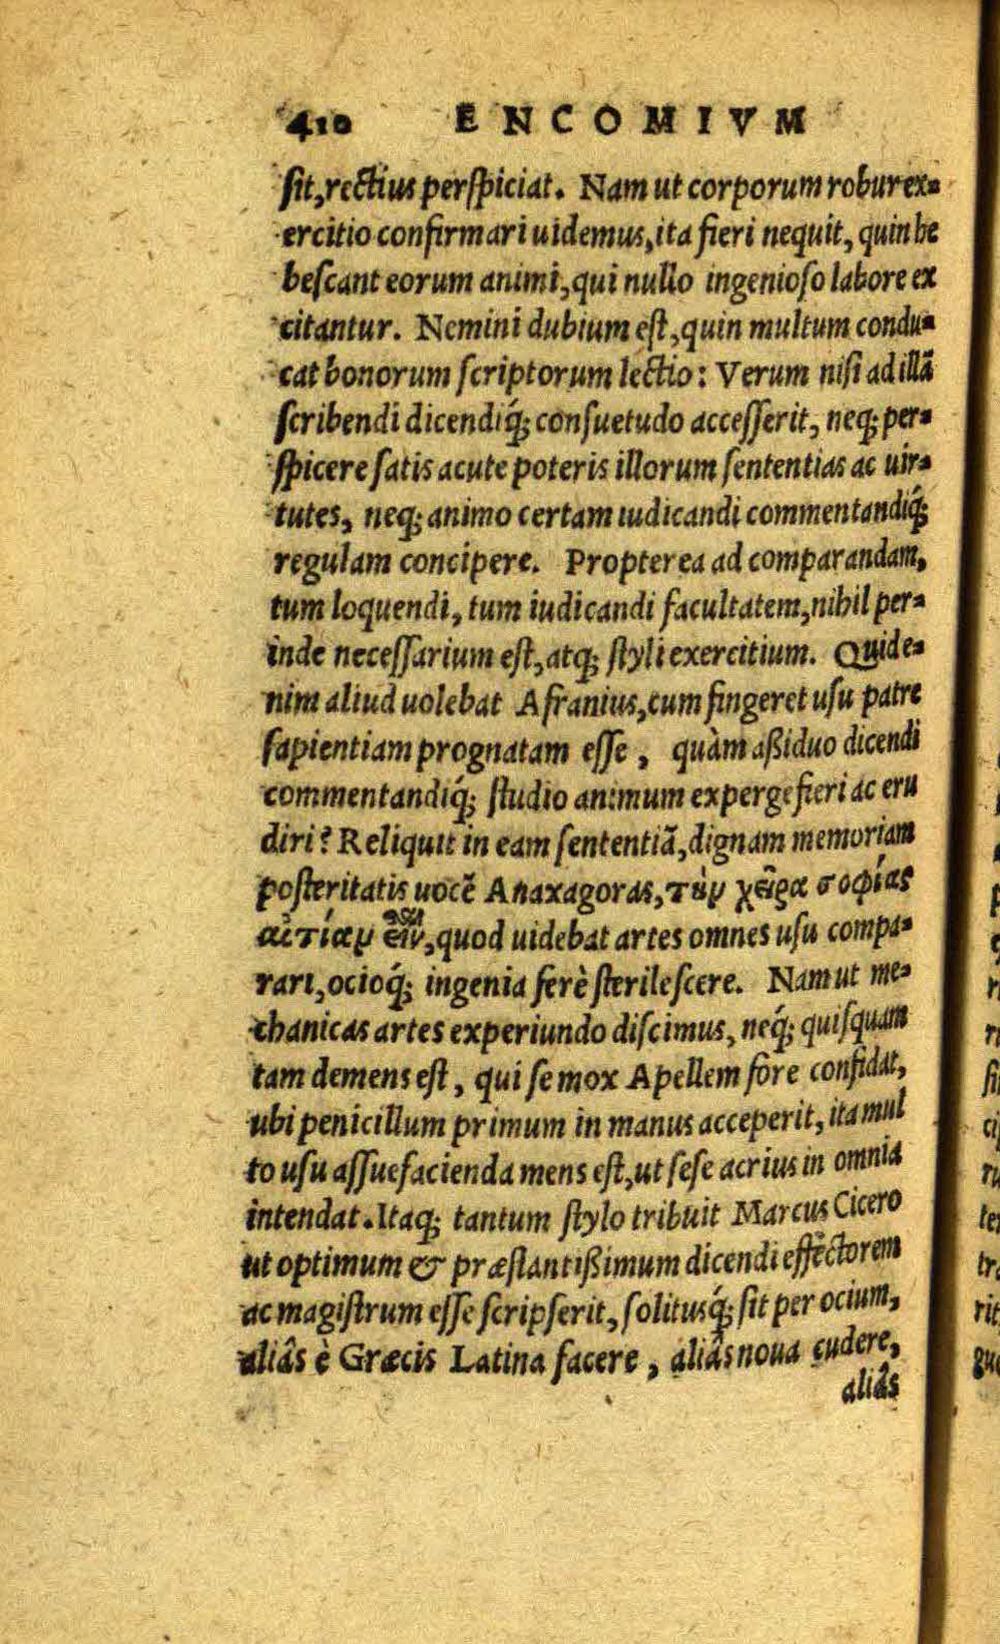 410 ENCOMIVM
sit, rectius perspiciat. Nam ut corporum robur ex=
ercitio confirmari uidemus, ita fieri nequit, quin he
bescant eorum animi, qui nullo ingenioso labore ex
citantur. Nemini dubium est, quin multum condu=
cat bonorum scriptorum lectio: Verum nisi ad illã
scribendi dicendiq́; consuetudo accesserit, neq; per=
spicere satis acute poteris illorum sententias ac uir=
tutes, neq; animo certam iudicandi commentandiq́;
regulam concipere. Propterea ad comparandam,
tum loquendi, tum iudicandi facultatem, nihil per=
inde necessarium est, atq; styli exercitium. Quid e=
nim aliud uolebat Afranius, cum fingeret usu patre
sapientiam prognatam esse, quàm aßiduo dicendi
commentandiq́; studio animum expergefieri ac eru
diri? Reliquit in eam sententiã, dignam memoriam
posteritatis uocẽ Anaxagoras, τὴν χεῖρα σοφίας
αἰτίαν, quod uidebat artes omnes usu compa=
rari, ocioq́; ingenia ferè sterilescere. Nam ut me=
chanicas artes experiundo discimus, neq́; quisquam
tam demens est, qui se mox Apellem fore confidat,
ubi penicillum primum in manus acceperit, ita mul
to usu assuefacienda mens est, ut sese acrius in omnia
intendat. Itaq; tantum stylo tribuit Marcus Cicero
ut optimum & præstantißimum dicendi effectorem
ac magistrum esse scripserit, solitusq́; sit per ocium,
aliâs è Græcis Latina facere, aliâs noua cudere,
aliâs